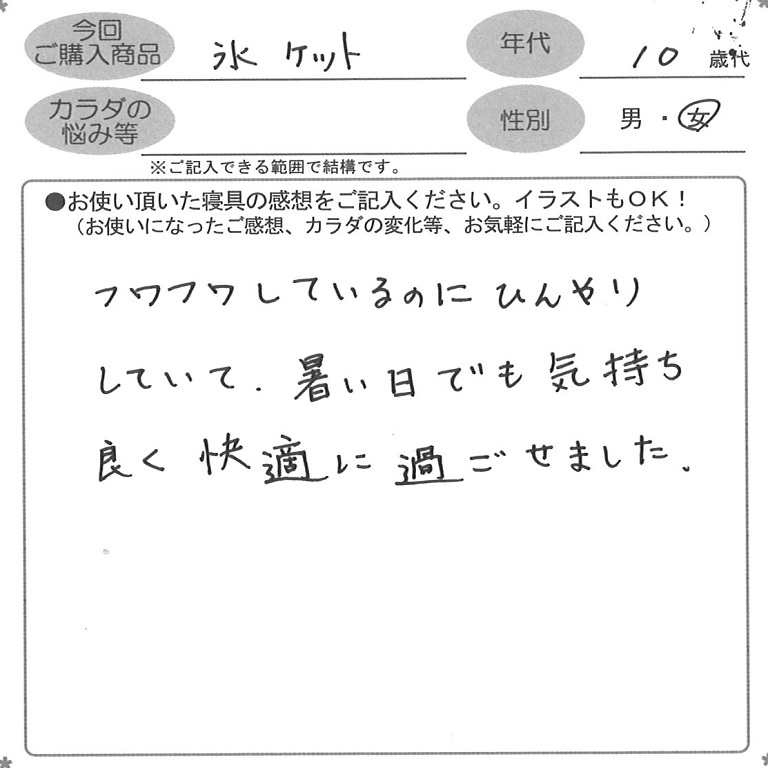 今回
ご購入商品
氷 ケット
年代
10 歳代
カラダの
悩み等
性別
男・女
※ご記入できる範囲で結構です。
●お使い頂いた寝具の感想をご記入ください。イラストもOK！
（お使いになったご感想、カラダの変化等、お気軽にご記入ください。）
フワフワしているのに ひんやり
していて、暑い日でも気持ち
良く 快適に 過ごせました。